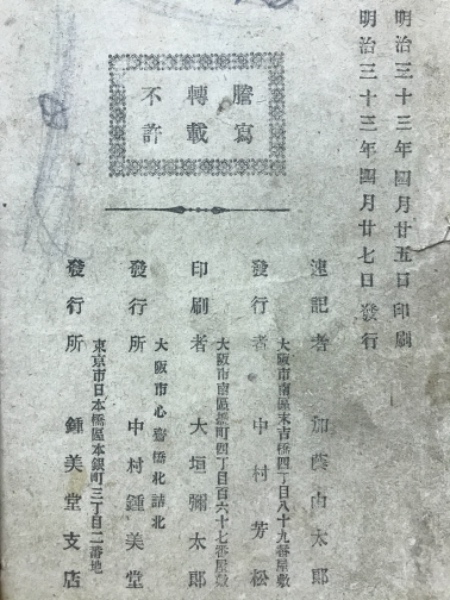 明治三十三年四月廿五日印刷
明治三十三年四月廿七日發行
謄寫
轉載
不許
速記者 加藤由太郎
大阪市南區末吉橋四丁目八十九番屋敷
發行者 中村芳松
大阪市南區 町四丁目百六十七番屋敷
印刷者 大垣彌太郎
大阪市心齋橋北詰北
發行所 中村鍾美堂
東京市日本橋區本銀町三丁目二番地
發行所 鍾美堂支店